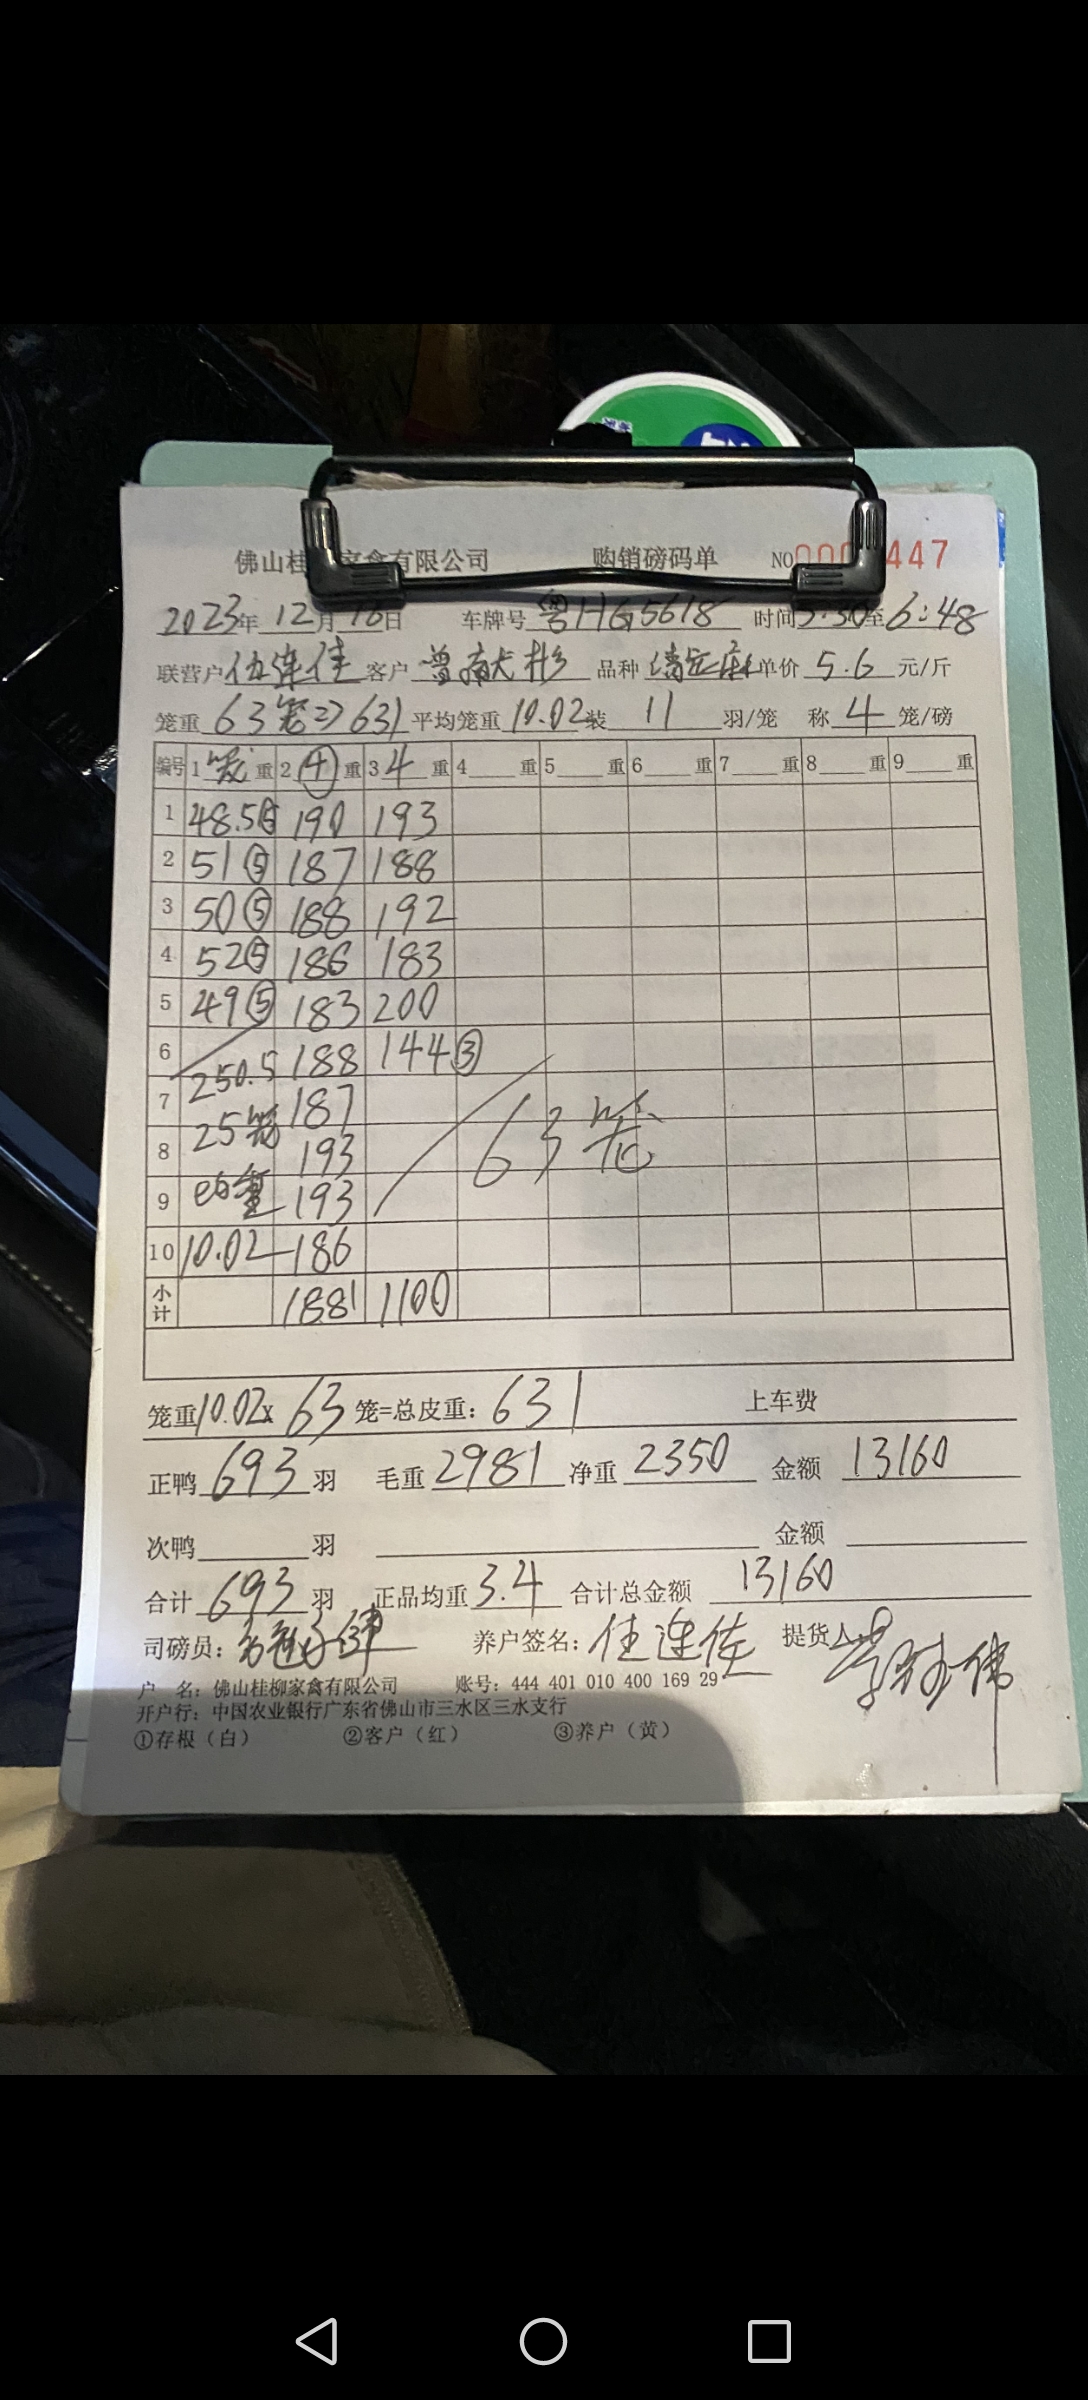 佛山桂 家禽有限公司 购销磅码单 NO 447
2023年 12月 16日 车牌号 粤HG5618 时间 5:30至6:48
联营户 伍连佳 客户 品种 清远麻 单价 5.6 元/斤
笼重 63笼=>631 平均笼重 10.02 装 11 羽/笼 称 4 笼/磅
编号 1 笼 重 2 ④ 重 3 4 重 4 重 5 重 6 重 7 重 8 重 9 重
1 48.5⑤ 190 193
2 51⑤ 187 188
3 50⑤ 188 192
4 52⑤ 186 183
5 49⑤ 183 200
6 250.5 188 144③
7 25笼 187
8 193 63笼
9 均重 193
10 10.02 186
小计 1881 1100
笼重10.02x 63 笼=总皮重: 631 上车费
正鸭 693 羽 毛重 2981 净重 2350 金额 13160
次鸭 羽 金额
合计 693 羽 正品均重 3.4 合计总金额 13160
司磅员: 养户签名: 伍连佳 提货人:
户 名: 佛山桂柳家禽有限公司 账号: 444 401 010 400 169 29
开户行: 中国农业银行广东省佛山市三水区三水支行
①存根（白） ②客户（红） ③养户（黄）